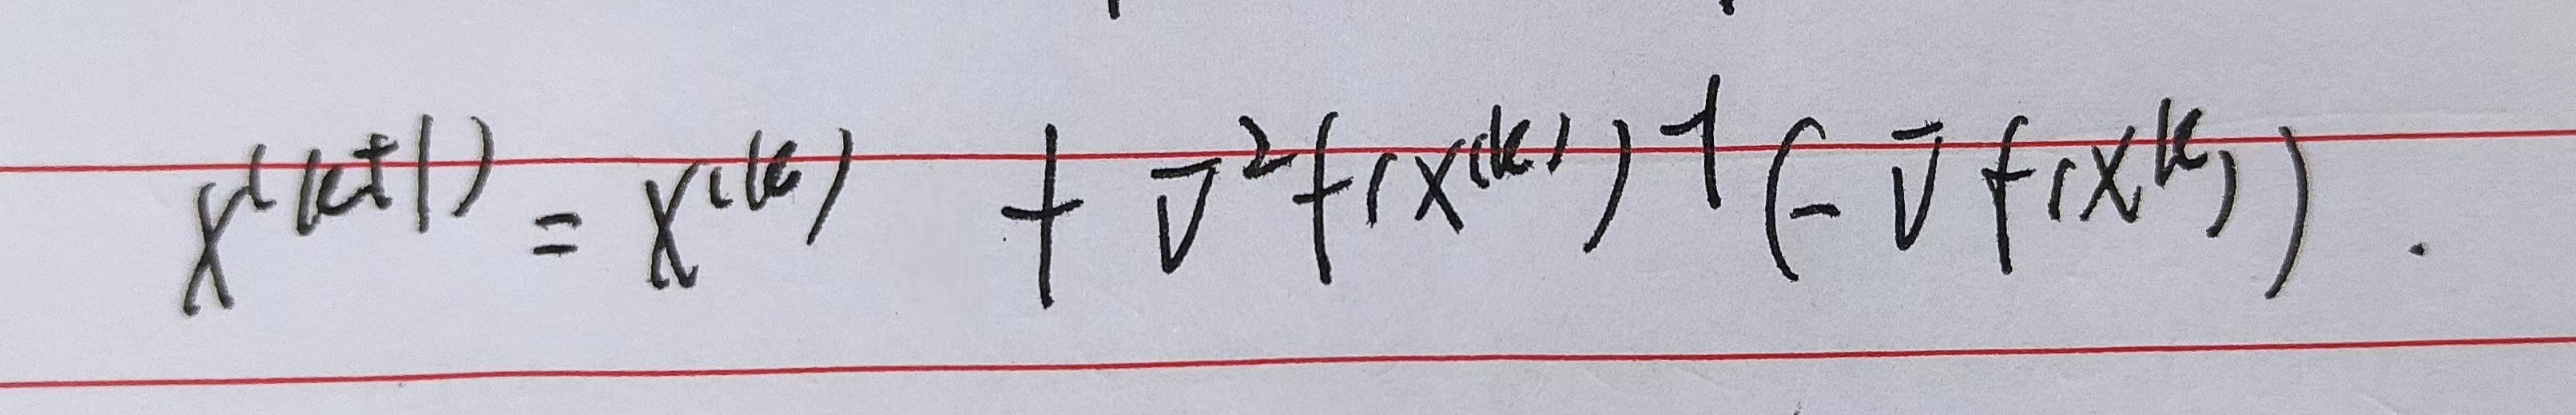 x^{(k+1)} = x^{(k)} + ∇²f(x^{(k)})^{-1} (-∇f(x^{k})).